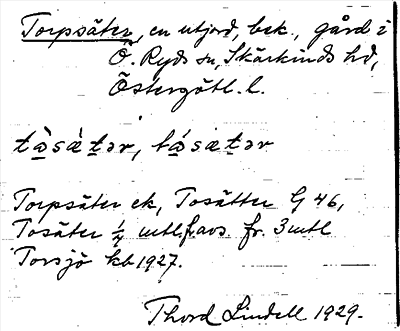 Torpsäter, en utjord, bek., gård i
Ö. Ryds sn, Skärkinds hd,
Östergötl. l.
tàsǽtər, tásætər
Torpsäter ek, Tosätter G 46,
Tosäter ¼ mtl, avs. fr. 3 mtl
Torsjö kb 1927.
Thord Lindell 1929.